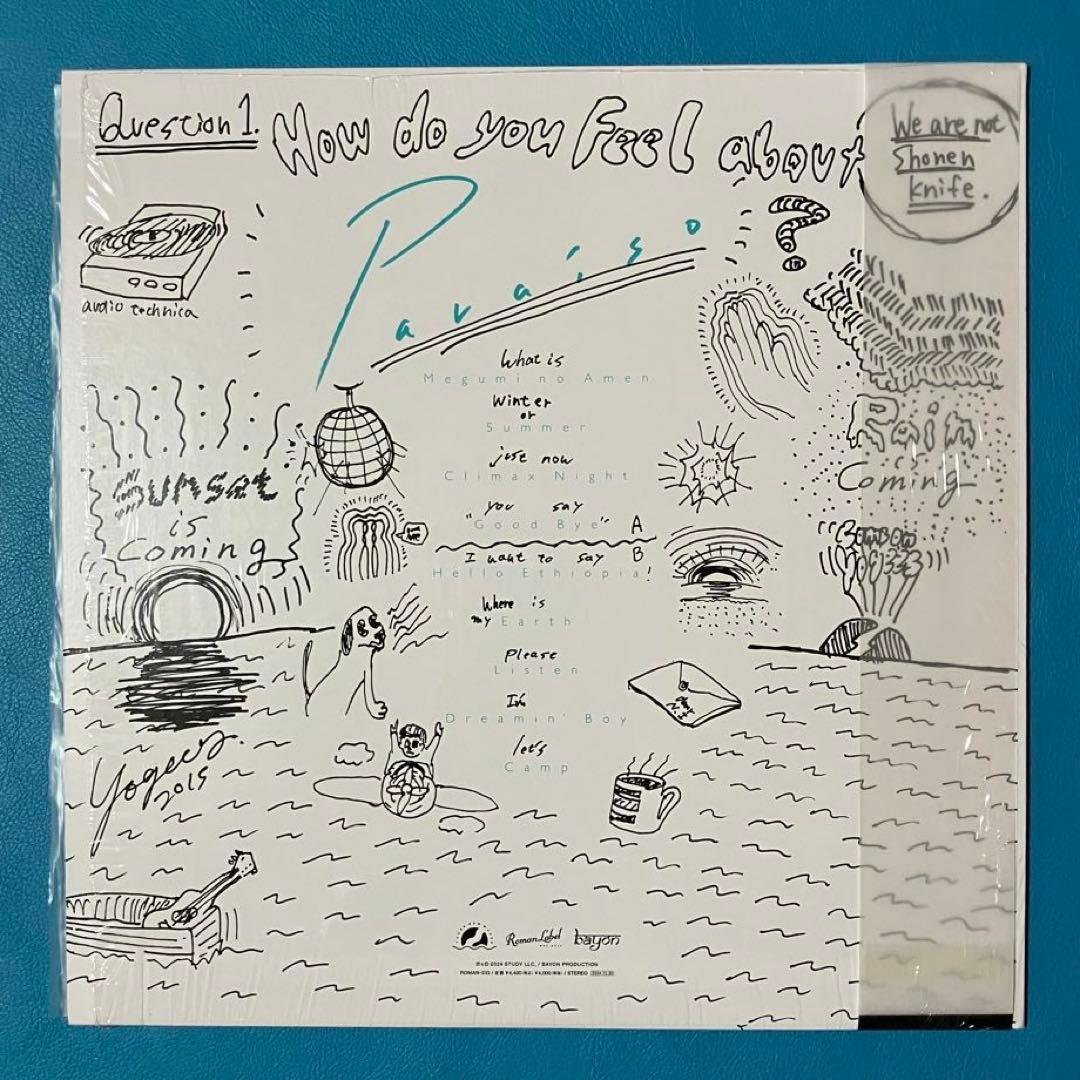 Question 1.
How do you Feel about
Paraiso
?
We are not
Shonen
Knife.
audio technica
What is
Megumi no Amen
Winter
or
Summer
just now
Climax Night
you say
"Good Bye"
A
I want to say
B
Hello Ethiopia!
Where is
my Earth
Please
Listen
I'm
Dreamin' Boy
let's
Camp
sunset
is
Coming
Rain
is
Coming
Yogees
2015
Roman Label
bayon
℗&© 2024 STUDY LLC. / BAYON PRODUCTION